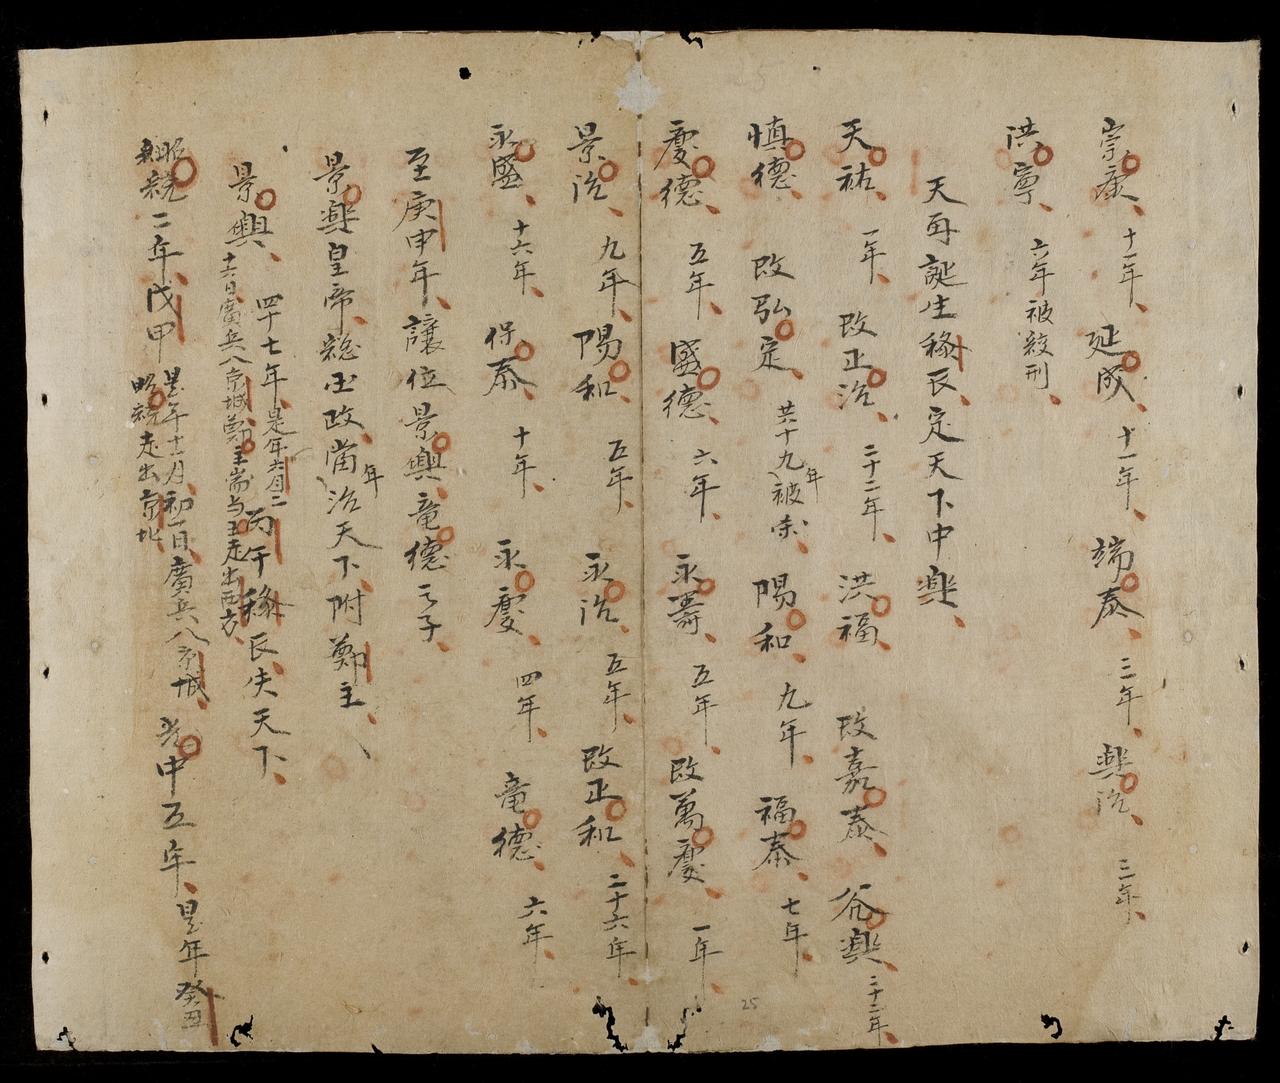 崇康 十一年 延成 十一年 端泰 三年 興治 三年
洪寧 六年被殺刑
天再誕生稼長定天下中興
天祐 一年 改正治 二十二年 洪福 改嘉泰 谷興 二十二年
慎德 改弘定 共十九年被 陽和 九年 福泰 七年
慶德 五年 盛德 六年 永壽 五年 改萬慶 一年
景治 九年 陽和 五年 永治 五年 改正和 二十六年
永盛 十六年 保泰 十年 永慶 四年 竜德 六年
至庚申年讓位景興竜德之子
景興皇帝 政當年治天下附鄭主
景興 四十七年是年六月二十六日廣兵入京城鄭主 走出西方 丙午稼長失天下
昭統二年戊申 是年十二月初一日廣兵入京城昭統走出京北 光中五年是年癸丑
25